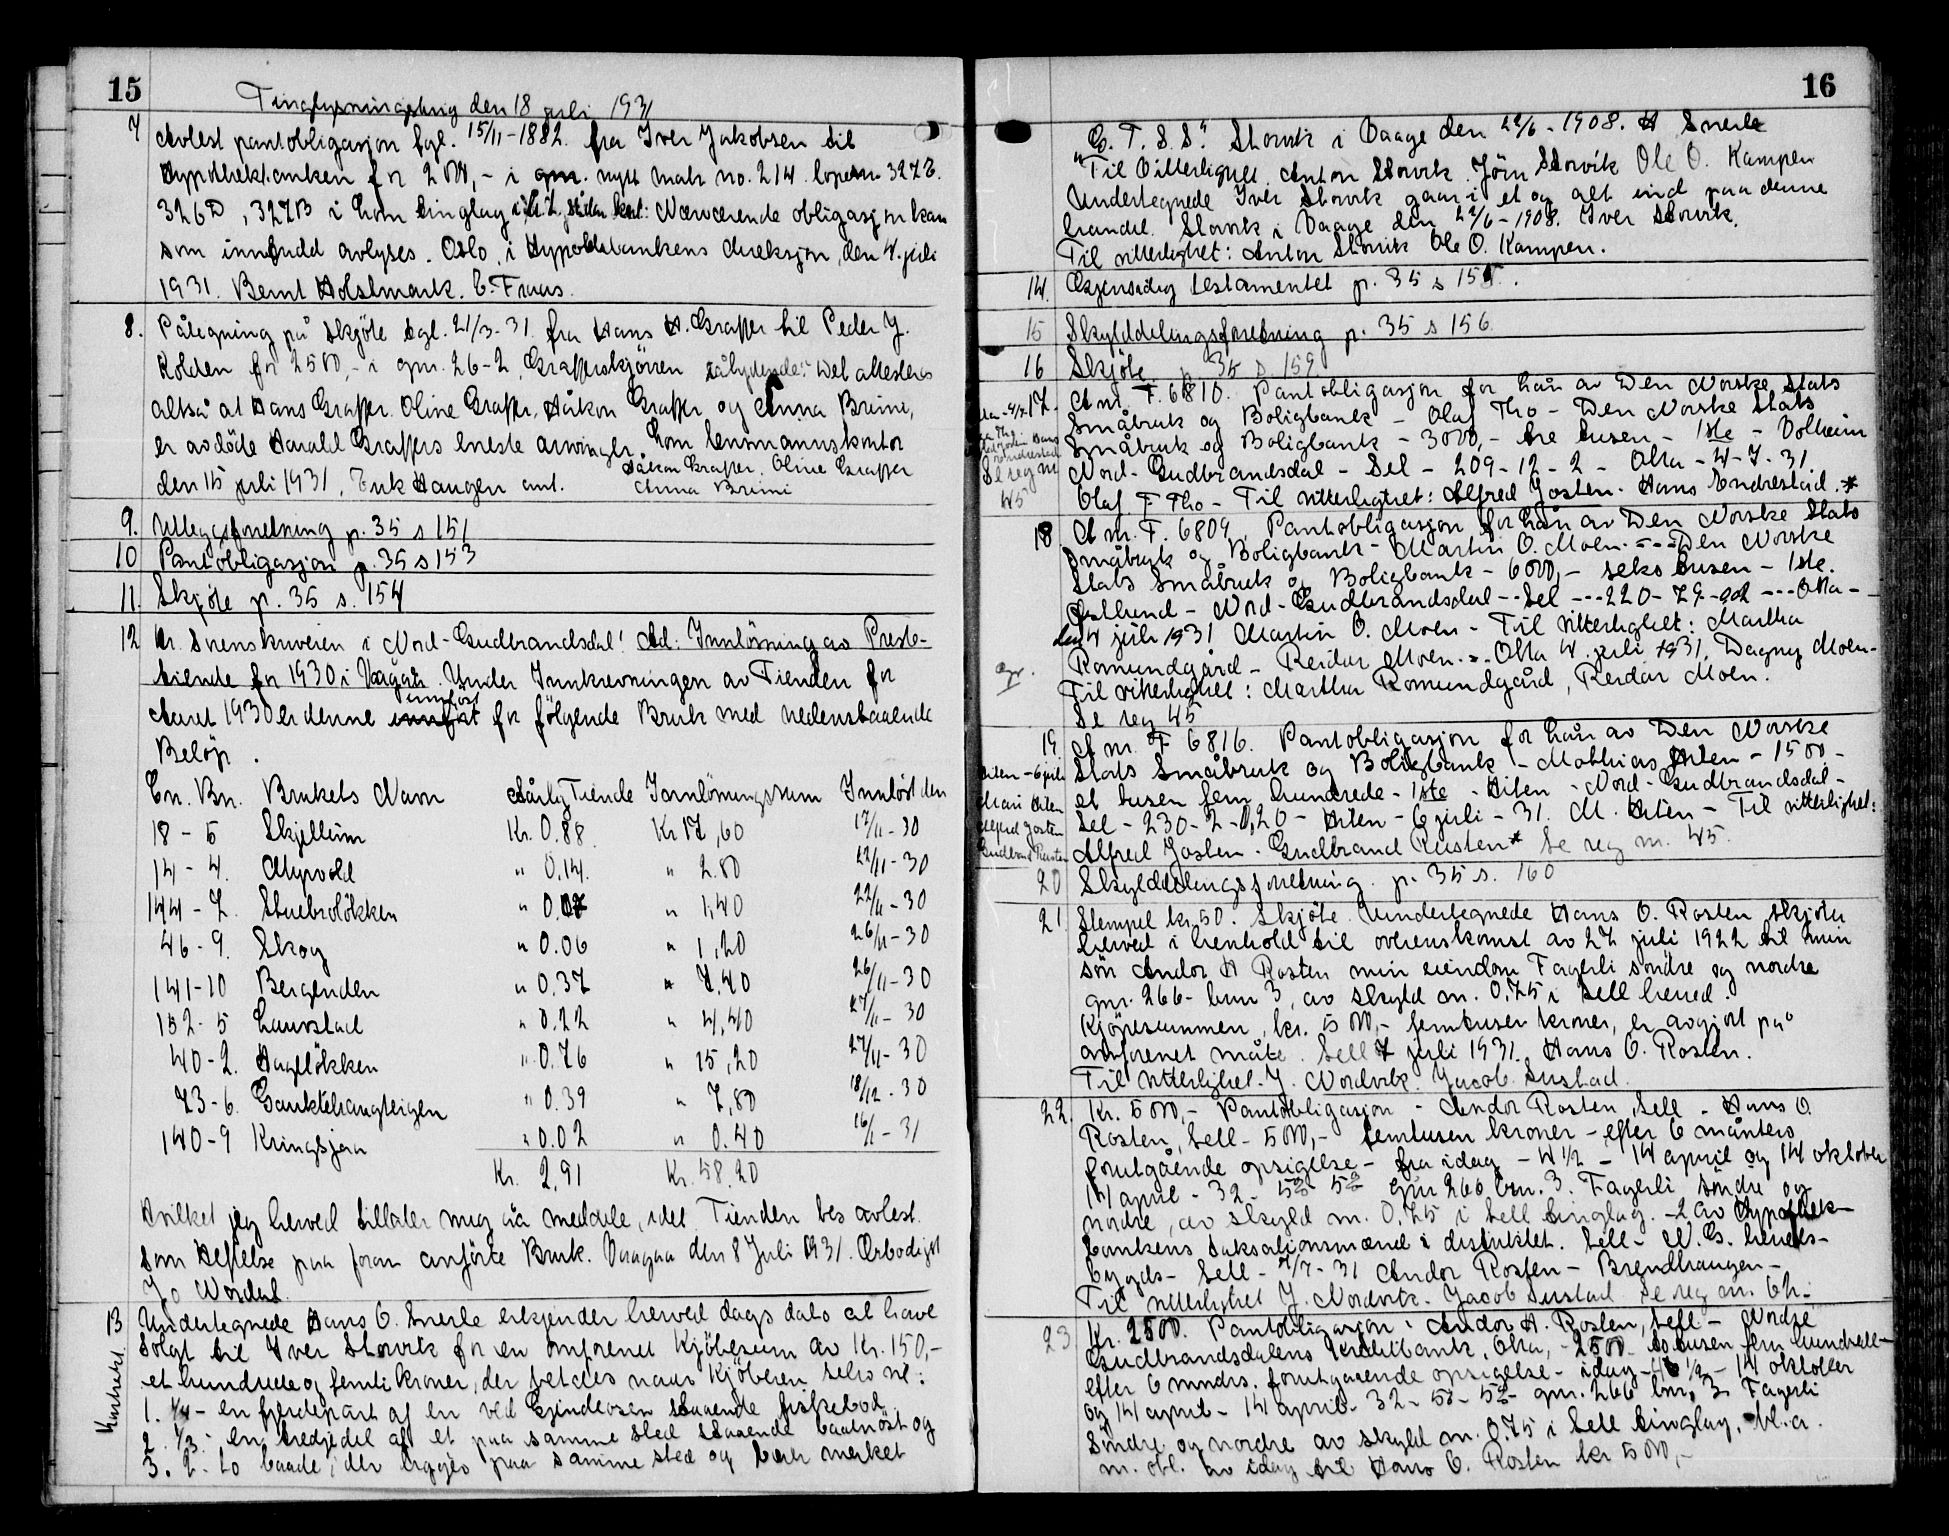 15
Tinglysningsting den 18 juli 1931
7 Avlest pantobligasjon tgl. 15/11-1882 fra Iver Jakobsen til
Hypothekbanken for 2000,- i gm. nytt matr no. 214 lopenr 327 b.
326 D, 327 B i Lom tinglag Nærværende obligasjon kan
som innfridd avlyses. Oslo, i Hypothekbankens direksjon, den 4. juli
1931. Bernt Holstmark. C. Fraas.
8. Påtegning på skjöte tgl. 21/3-31 fra Hans H. Graffer til Peder J.
Kolden for 2500,- i gnr. 26-2, Grafferskjörren sålydende: Det attesteres
altså at Hans Graffer, Oline Graffer, Håkon Graffer og Anna Brimi,
er avdöde Harald Graffers eneste arvinger. Lom lensmannskontor
den 15 juli 1931, Erik Haugen ant. Håkon Graffer. Oline Graffer
Anna Brimi
9. Utleggsforretning p. 35 s 151
10 Pantobligasjon p. 35 s 153
11. Skjöte p. 35 s. 154
12 Hr. Sorenskriveren i Nord-Gudbrandsdal! Ad: Innlösning av Preste-
tiende for 1930 i Vågå. Under Innkrevningen av Tienden for
Aaret 1930 er denne innlöst for fölgende Bruk med nedenstaaende
Belöp.
Gn. Bn. Brukets Navn Aarlig Tiende Innlösningssum Innlöst den
18 - 5 Skjellum Kr. 0.88 Kr 17,60 17/11-30
14 - 4. Myrvold " 0.14. " 2.80 22/11-30
144 - 7. Stuebrolökken " 0.07 " 1,40 22/11-30
46 - 9. Skog " 0.06 " 1,20 26/11-30
141-10 Bergenden " 0.37 " 7,40 26/11-30
152 - 5 Laurstad " 0.22 " 4,40 27/11-30
40 - 2. Hagelökken " 0.76 " 15,20 27/11-30
73 - 6. Gaukstihaugteigen " 0.39 " 7,80 18/12-30
140-9 Kringsjaa " 0.02 " 0.40 16/1-31
Kr. 2,91 Kr. 58.20
Hvilket jeg herved tillater mig aa meddele, idet Tienden bes avlest.
som Heftelse paa foran anförte Bruk. Vaagaa den 8 Juli 1931. Ærbödigst
Jo Nordal.
13 Undertegnede Hans O. Snerle erkjender herved dags dato at have
Kontrakt
solgt til Iver Storvik for en omforenet Kjöbesum av Kr. 150,-
et hundrede og femti kroner, der betales naar Kjöberen selv vil:
1. 1/4 - en fjerdepart af en ved Gjendeosen staaende fiskebod
2. 1/3 - en tredjedel af et paa samme sted staaende baatnöst og
3. 2 - to baade, der ligger paa samme sted og bærer merket
16
G. T. S. S." Storvik i Vaage den 22/6-1908. H Snerle
"Til Vitterlighet Anton Storvik Jörn Storvik Ole O. Kampen
Undertegnede Iver Storvik gaar i et og alt ind paa denne
handel. Storvik i Vaage den 22/6-1908. Iver Storvik.
Til vitterlighet: Anton Storvik Ole O. Kampen.
14. Gjensidig testamentet p. 35 s 155.
15 Skylddelingsforretning p. 35 s 156
16 Skjöte p. 35 s 159
17. A nr. F. 6810. Pantobligasjon for lån av Den Norske Stats
Småbruk og Boligbank - Olaf Tho - Den Norske Stats
Småbruk og Boligbank - 3000,- tre tusen - 1ste - Volheim
Nord-Gudbrandsdal - Sel - 209-12-2 - Otta - 4-7-31
Se reg nr 45
Olaf F Tho - Til vitterlighet: Alfred Josten. Hans Endrestad.*
18 A nr. F. 6809. Pantobligasjon for lån av Den Norske Stats
Småbruk og Boligbank - Martin O. Moen. --- Den Norske
Stats Småbruk og Boligbank - 6000,- seks tusen - 1ste.
- Nord-Gudbrandsdal -- Sel --- 220-79- --- Otta -
den 4 juli 1931 Martin O. Moen - Til vitterlighet: Martha
Romundgård - Reidar Moen. -- Otta 4. juli 1931, Dagny Moen -
gr.
Til vitterlighet: Martha Romundgård, Reidar Moen.
Se reg 45
19 A nr. F 6816. Pantobligasjon for lån av Den Norske
Stats Småbruk og Boligbank - Mathias Hiten - 1500 -
et tusen fem hundrede - 1ste - Hiten - Nord-Gudbrandsdal -
Sel - 230-2-0,20 - Hiten - 6 juli - 31. M. Hiten - Til vitterlighet:
Alfred Josten. Gudbrand Rusten* Se reg nr. 45.
Hiten - 6 juli
Mari Hiten
Alfred Josten
Gudbrand Rusten
20 Skylddelingsforretning. p. 35 s. 160
21. Stempel kr. 50. Skjöte. Undertegnede Hans O. Rosten skjöter
herved i henhold til overenskomst av 27 juli 1922 til min
sön Andor H Rosten min eiendom Fagerli söndre og nordre
gnr. 266 - bnr 3, av skyld m. 0,75 i Sell herred.
Kjöpesummen, kr. 5000,- femtusen kroner, er avgjort på
omforenet måte. Sell 7 juli 1931. Hans O. Rosten.
Til vitterlighet J. Nordvik. Jacob Sustad.
22. Kr. 5000,- Pantobligasjon - Andor Rosten, Sell - Hans O.
Rosten, Sell - 5000,- femtusen kroner - efter 6 måneders
forutgående opsigelse - fra idag - 4 1/2 - 14 april og 14 oktober
14 april - 32 - 5te - 5te gnr 266 bnr. 3. Fagerli söndre og
nordre, av skyld m. 0,75 i Sell tinglag. - 2 av Hypothek-
bankens taksationsmænd i distriktet. Sell - N. G. herreds-
bygds - Sell - 7/7-31 Andor Rosten - Brendhaugen -
Til vitterlighet J. Nordvik. Jacob Sustad. Se reg nr. 61.
23. Kr. 2500. Pantobligasjon - Andor H. Rosten, Sell - Nordre
Gudbrandsdalens Kreditbank, Otta, - 2500 to tusen fem hundrede -
efter 6 mndrs. forutgaaende opsigelse - idag - 6 1/2 - 14 oktober
og 14 april - 14 april - 32 - 5te - 5te - gnr. 266 bnr. 3 Fagerli
söndre og nordre av skyld m. 0.75 i Sell tinglag. M. a.
m. obl. av idag til Hans O. Rosten kr 5000,-